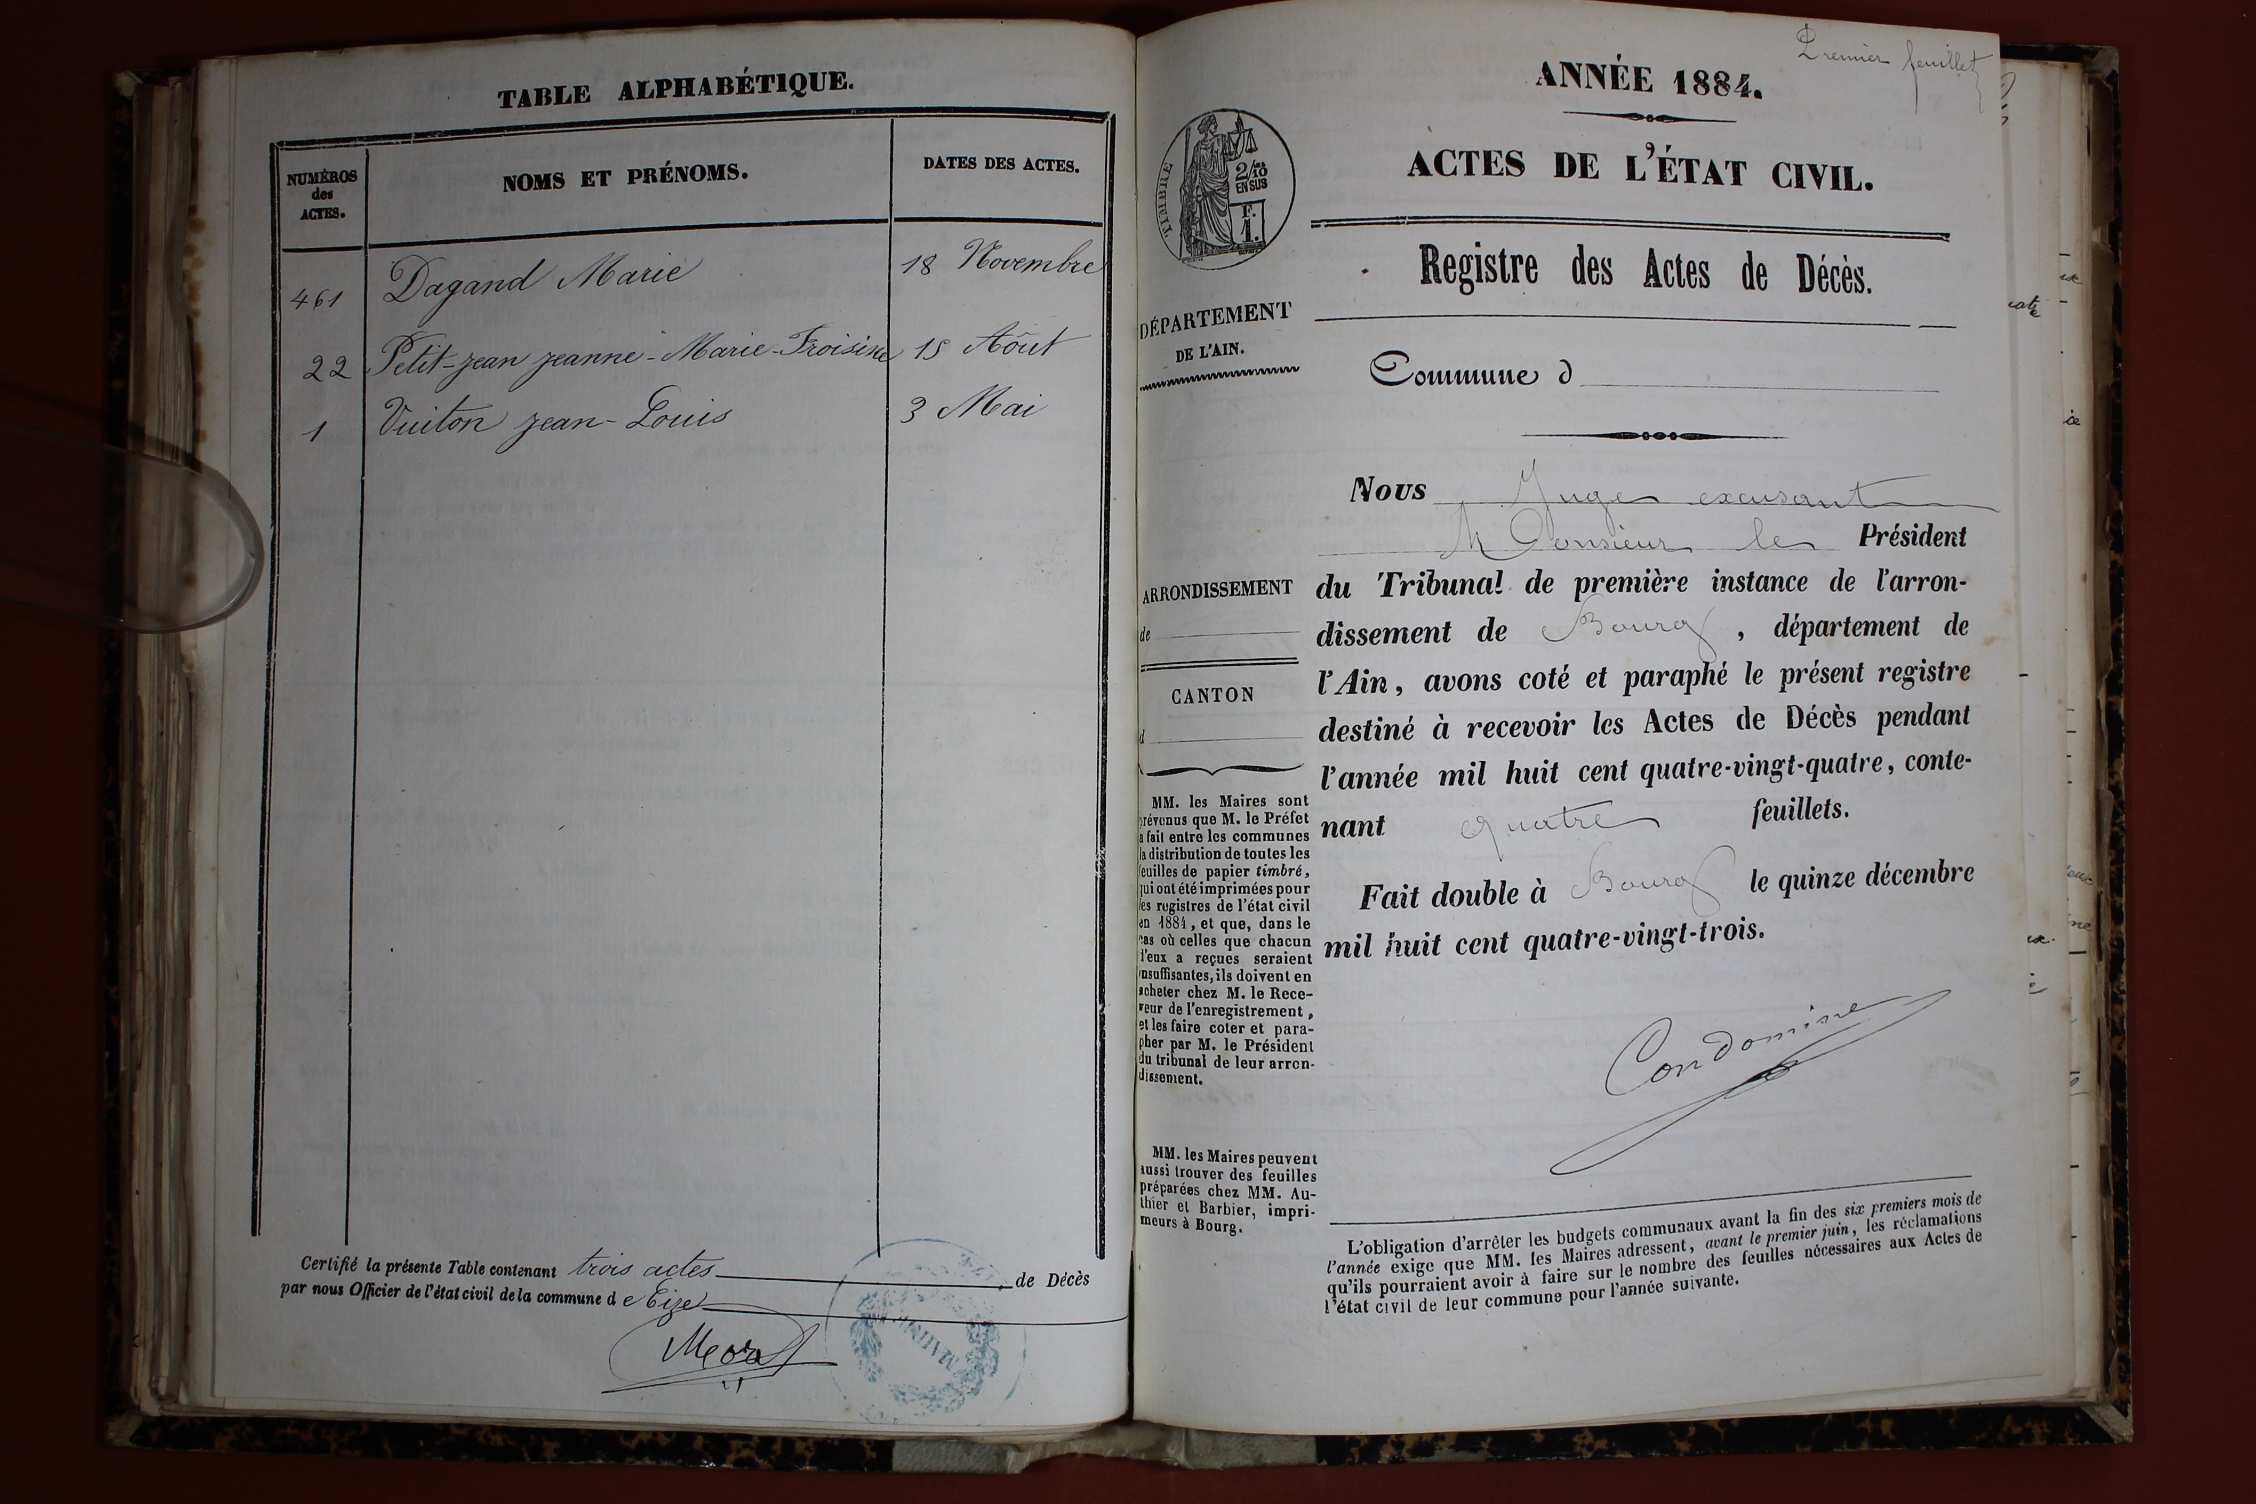 TABLE ALPHABÉTIQUE.
NUMÉROS des ACTES.
NOMS ET PRÉNOMS.
DATES DES ACTES.
461 Dagand Marie 18 Novembre
22 Petit-jean jeanne-Marie-Froisine 15 Août
1 Vuiton jean-Louis 3 Mai
Certifié la présente Table contenant trois actes de Décès
par nous Officier de l'état civil de la commune d e Eize
MAIRIE
Premier feuillet
ANNÉE 1884.
ACTES DE L'ÉTAT CIVIL.
TIMBRE
2/10
EN SUS
F.
1.
Registre des Actes de Décès.
DÉPARTEMENT
DE L'AIN.
Commune d
Nous Juge excusant
Monsieur le Président
du Tribunal de première instance de l'arron-
dissement de Bourg, département de
l'Ain, avons coté et paraphé le présent registre
destiné à recevoir les Actes de Décès pendant
l'année mil huit cent quatre-vingt-quatre, conte-
nant quatre feuillets.
Fait double à Bourg le quinze décembre
mil huit cent quatre-vingt-trois.
Condomine
ARRONDISSEMENT
de
CANTON
d
MM. les Maires sont
prévenus que M. le Préfet
a fait entre les communes
la distribution de toutes les
feuilles de papier timbré,
qui ont été imprimées pour
les registres de l'état civil
en 1884, et que, dans le
cas où celles que chacun
d'eux a reçues seraient
insuffisantes, ils doivent en
acheter chez M. le Rece-
veur de l'enregistrement,
et les faire coter et para-
pher par M. le Président
du tribunal de leur arron-
dissement.
MM. les Maires peuvent
aussi trouver des feuilles
préparées chez MM. Au-
thier et Barbier, impri-
meurs à Bourg.
L'obligation d'arrêter les budgets communaux avant la fin des six premiers mois de
l'année exige que MM. les Maires adressent, avant le premier juin, les réclamations
qu'ils pourraient avoir à faire sur le nombre des feuilles nécessaires aux Actes de
l'état civil de leur commune pour l'année suivante.